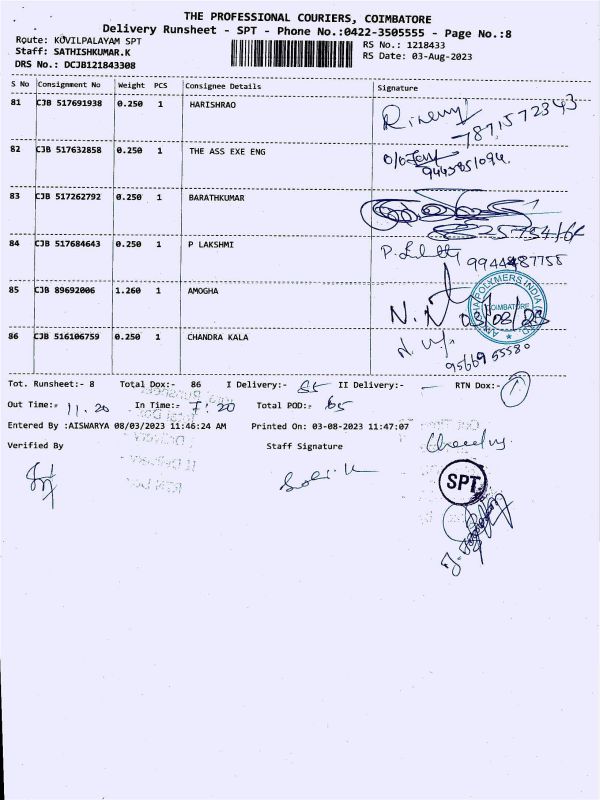 THE PROFESSIONAL COURIERS, COIMBATORE
Delivery Runsheet - SPT - Phone No.:0422-3505555 - Page No.:8
Route: KOVILPALAYAM SPT RS No.: 1218433
Staff: SATHISHKUMAR.K RS Date: 03-Aug-2023
DRS No.: DCJB121843308
S No Consignment No Weight PCS Consignee Details Signature
81 CJB 517691938 0.250 1 HARISHRAO
82 CJB 517632858 0.250 1 THE ASS EXE ENG
9445851094
83 CJB 517262792 0.250 1 BARATHKUMAR
84 CJB 517684643 0.250 1 P LAKSHMI
9944487758
85 CJB 89692006 1.260 1 AMOGHA
03/08/23
COIMBATORE
86 CJB 516106759 0.250 1 CHANDRA KALA
9566955580
Tot. Runsheet:- 8 Total Dox:- 86 I Delivery:- II Delivery:- — RTN Dox:- 1
Out Time:- 11.20 In Time:- 7:20 Total POD:- 65
Entered By :AISWARYA 08/03/2023 11:46:24 AM Printed On: 03-08-2023 11:47:07
Verified By Staff Signature
SPT